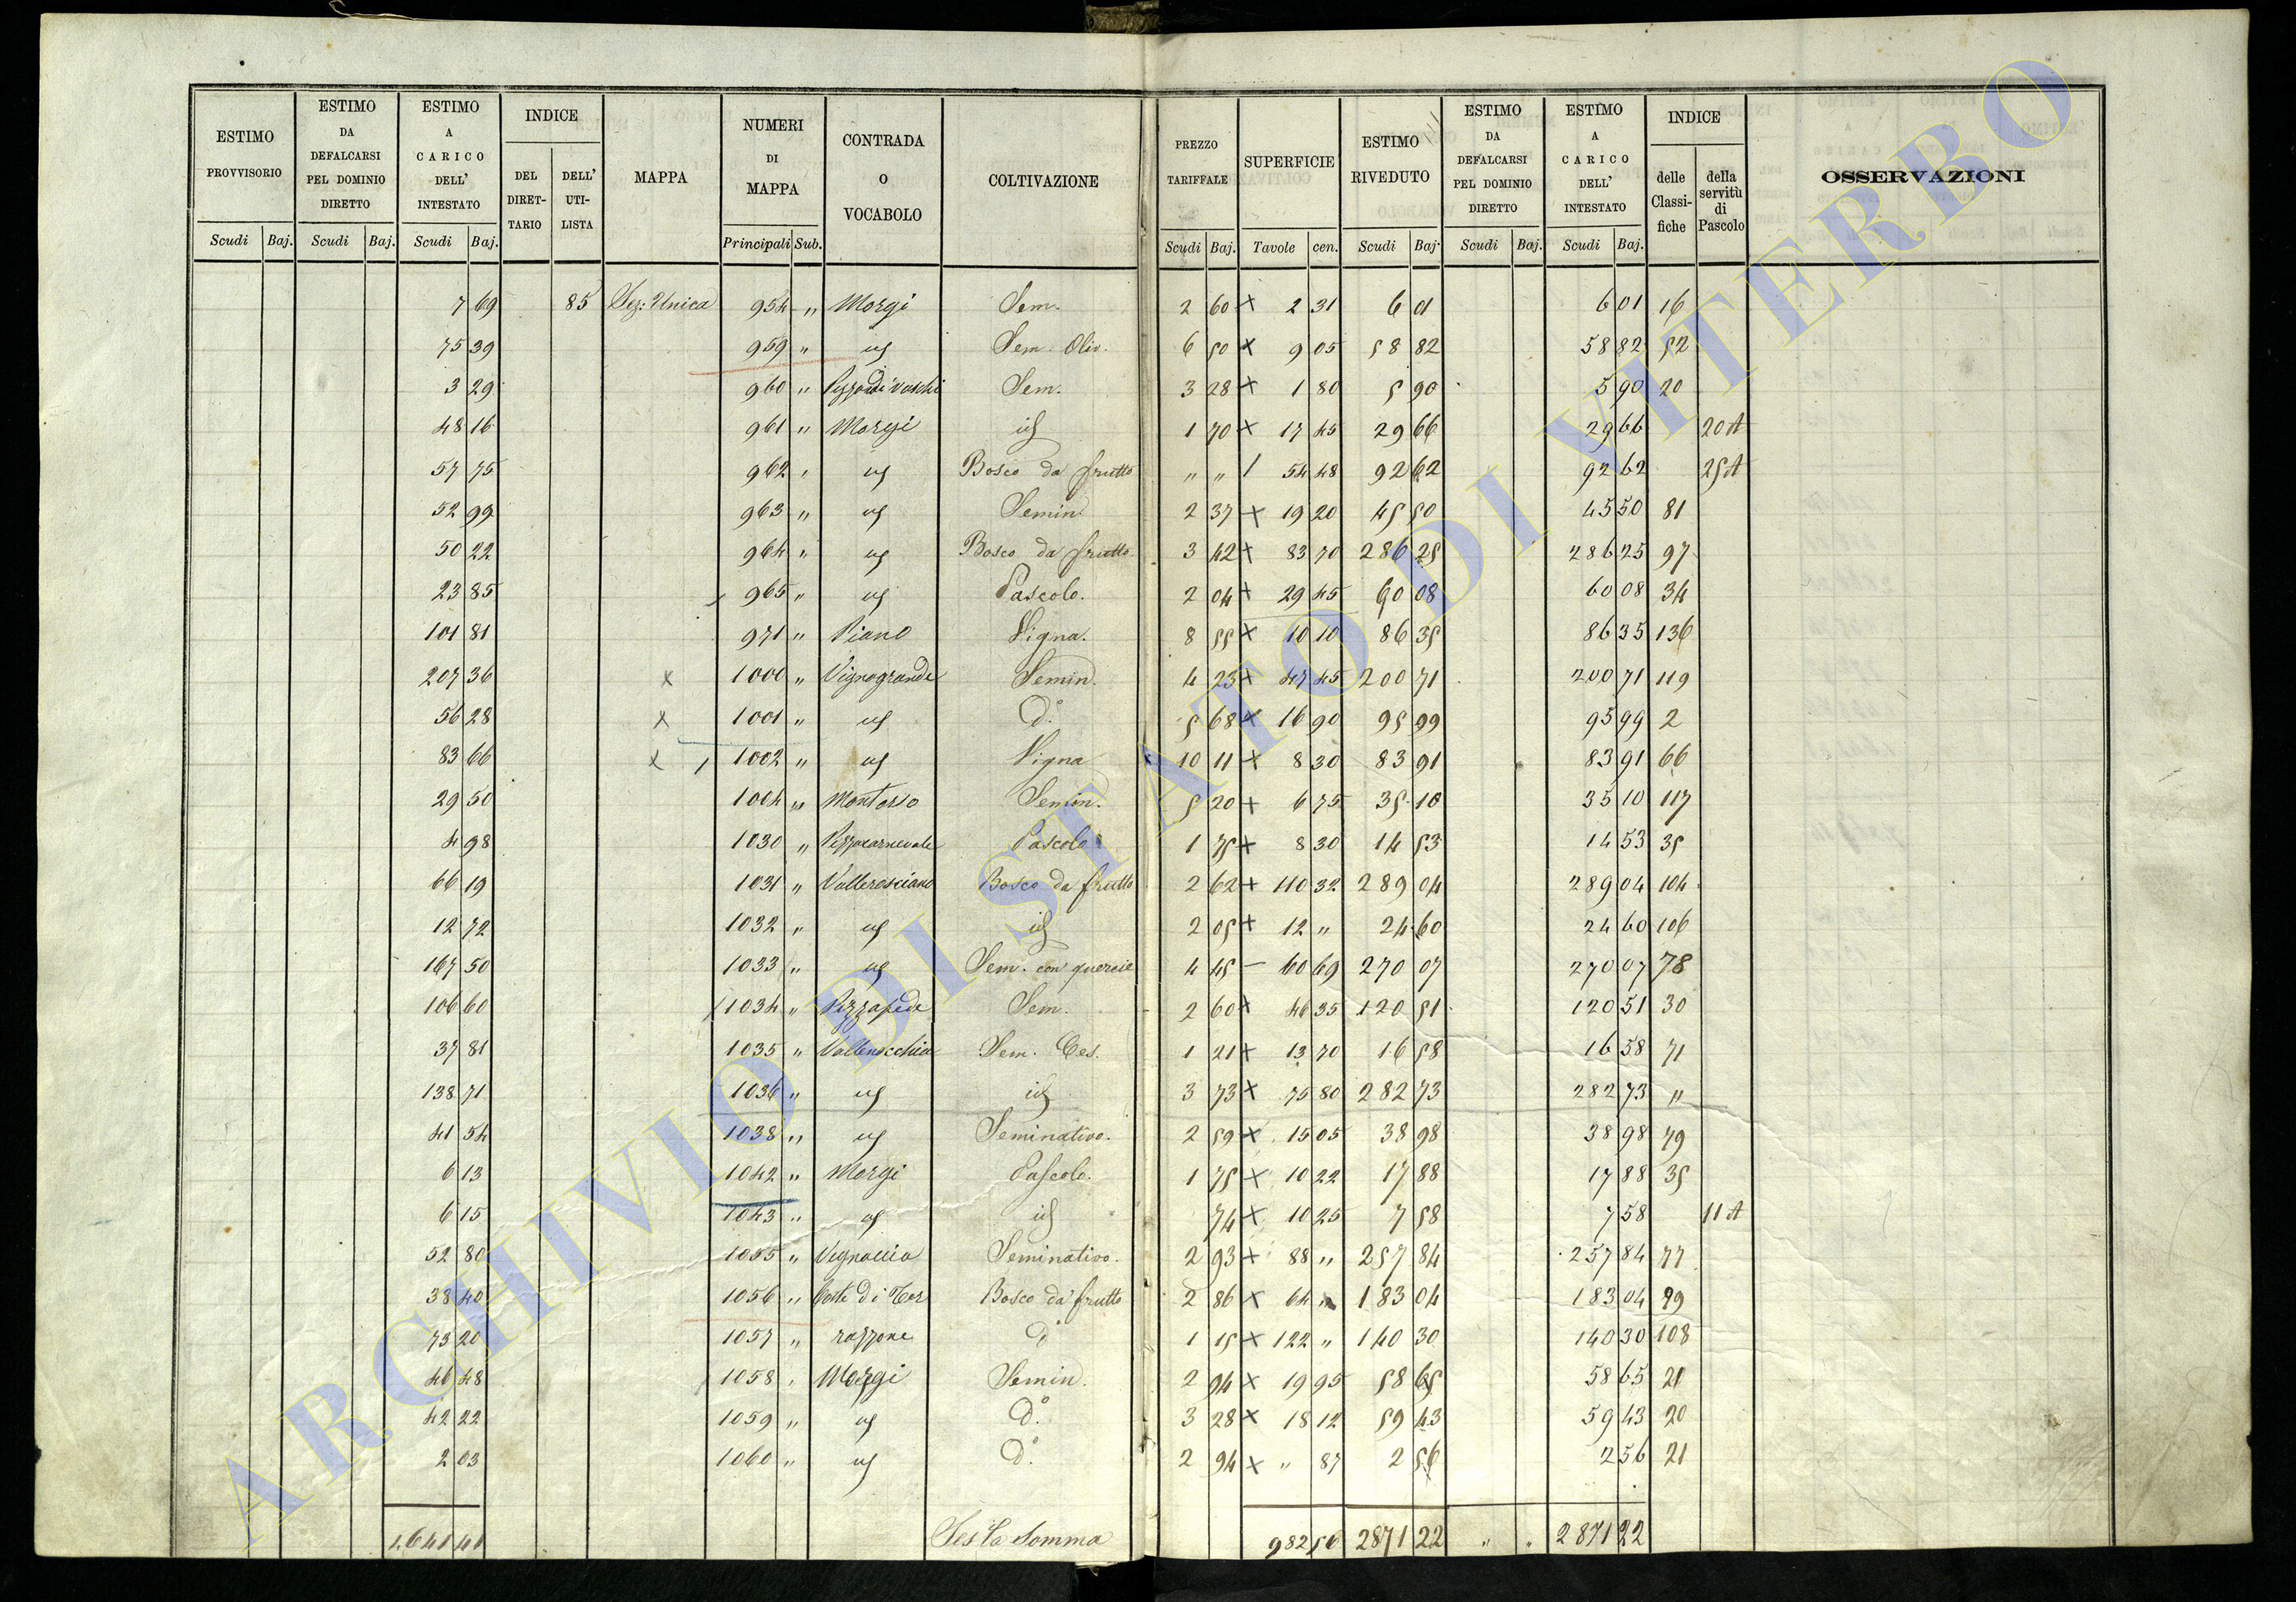 ESTIMO PROVVISORIO
ESTIMO DA DEFALCARSI PEL DOMINIO DIRETTO
ESTIMO A CARICO DELL' INTESTATO
INDICE
DEL DIRET-TARIO
DELL' UTI-LISTA
MAPPA
NUMERI DI MAPPA
CONTRADA O VOCABOLO
COLTIVAZIONE
PREZZO TARIFFALE
SUPERFICIE
ESTIMO RIVEDUTO
ESTIMO DA DEFALCARSI PEL DOMINIO DIRETTO
ESTIMO A CARICO DELL' INTESTATO
INDICE
delle Classi-fiche
della servitù di Pascolo
OSSERVAZIONI
Scudi Baj. Scudi Baj. Scudi Baj. Principali Sub. Scudi Baj. Tavole cen. Scudi Baj. Scudi Baj. Scudi Baj.
7 69 85 Sez: Unica 954 " Morgi Sem. 2 60 x 2 31 6 01 6 01 16
75 39 959 " id Sem. Oliv. 6 50 x 9 05 58 82 58 82 52
3 29 960 " Sem. 3 28 x 1 80 5 90 5 90 20
48 16 961 " Morgi id 1 70 x 17 45 29 66 29 66 20 A
57 75 962 " id Bosco da frutto " " / 54 48 92 62 92 62 25 A
52 99 963 " id Semin 2 37 x 19 20 45 50 45 50 81
50 22 964 " id Bosco da frutto 3 42 x 83 70 286 25 286 25 97
23 85 965 " id Pascolo. 2 04 x 29 45 60 08 60 08 34
101 81 971 " Piano Vigna. 8 55 x 10 10 86 35 86 35 136
207 36 x 1000 " Vignagrande Semin. 4 23 x 47 45 200 71 200 71 119
56 28 x 1001 " id D.o 5 68 x 16 90 95 99 95 99 2
83 66 x 1002 " id Vigna 10 11 x 8 30 83 91 83 91 66
29 50 1004 " Montorso Semin. 5 20 x 6 75 35 10 35 10 117
4 98 1030 " Pezzacarnevale Pascolo 1 75 x 8 30 14 53 14 53 35
66 19 1031 " Valleresciano Bosco da frutto 2 62 x 110 32 289 04 289 04 104
12 72 1032 " id id 2 05 x 12 " 24 60 24 60 106
167 50 1033 " id Sem. con quercie 4 45 – 60 69 270 07 270 07 78
106 60 1034 " Pezzafede Sem. 2 60 x 46 35 120 51 120 51 30
37 81 1035 " Sem. Ces. 1 21 x 13 70 16 58 16 58 71
138 71 1036 " id id 3 73 x 75 80 282 73 282 73 "
41 54 1038 " id Seminativo. 2 59 x 15 05 38 98 38 98 79
6 13 1042 " Morgi Pascolo. 1 75 x 10 22 17 88 17 88 35
6 15 1043 " id id 74 x 10 25 7 58 7 58 11 A
52 80 1055 " Vignaccia Seminativo. 2 93 x 88 " 257 84 257 84 77
38 40 1056 " Coste di Ter Bosco da frutto 2 86 x 64 " 183 04 183 04 99
73 20 1057 " razzone D.o 1 15 x 122 " 140 30 140 30 108
46 48 1058 " Morgi Semin. 2 94 x 19 95 58 65 58 65 21
42 22 1059 " id D.o 3 28 x 18 12 59 43 59 43 20
2 03 1060 " id D.o 2 94 x " 87 2 56 2 56 21
1,641 41 Sesta Somma 982 50 2871 22 " " 2871 22
ARCHIVIO DI STATO DI VITERBO